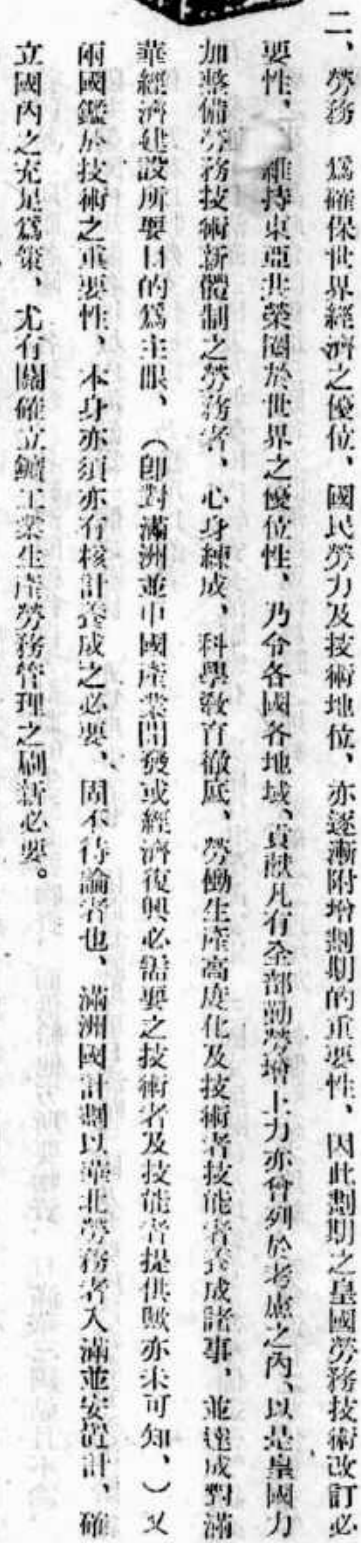 二、勞務　爲確保世界經濟之優位、國民勞力及技術地位、亦逐漸附增劃期的重要性、因此劃期之皇國勞務技術改訂必
要性、　維持東亞共榮圈於世界之優位性、乃令各國各地域、貢獻凡有全部勤勞增上力亦曾列於考慮之內、以是皇國力
加整備勞務技術新體制之勞務者、心身練成、科學敎育徹底、勞働生產高度化及技術者技能者養成諸事、並達成對滿
華經濟建設所要目的爲主眼、（卽對滿洲並中國產業開發或經濟復興必需要之技術者及技能者提供歟亦未可知、）又
兩國鑑於技術之重要性、本身亦須亦有核計養成之必要、固不待論者也、滿洲國計劃以華北勞務者入滿並安置計、確
立國內之充足爲策、尤有關確立鑛工業生產勞務管理之刷新必要。